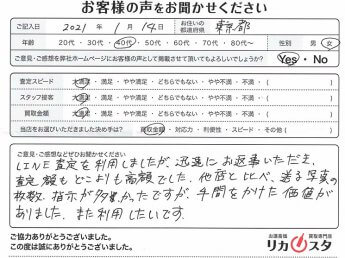 お客様の声をお聞かせください
ご記入日 2021 年 1 月 14 日 お住いの都道府県 東京都
年齢 20代・30代・40代・50代・60代・70代・80代~ 性別 男・女
ご意見・ご感想を弊社ホームページにお客様の声として掲載させて頂いてもよろしいでしょうか? Yes・No
査定スピード 大満足・満足・やや満足・どちらでもない・やや不満・不満・( )
スタッフ接客 大満足・満足・やや満足・どちらでもない・やや不満・不満・( )
買取金額 大満足・満足・やや満足・どちらでもない・やや不満・不満・( )
当店をお選びいただきました決め手は? 買取金額・対応力・利便性・スピード・その他( )
ご意見・ご感想などぜひお聞かせください。
LINE査定を利用しましたが、迅速にお返事いただき、
査定額もどこよりも高額でした。他店と比べ、送る写真の
枚数、指示が多かったですが、手間をかけた価値が
ありました。また利用したいです。
ご協力ありがとうございました。
この度は誠にありがとうございました。
お酒買取専門店
リカスタ